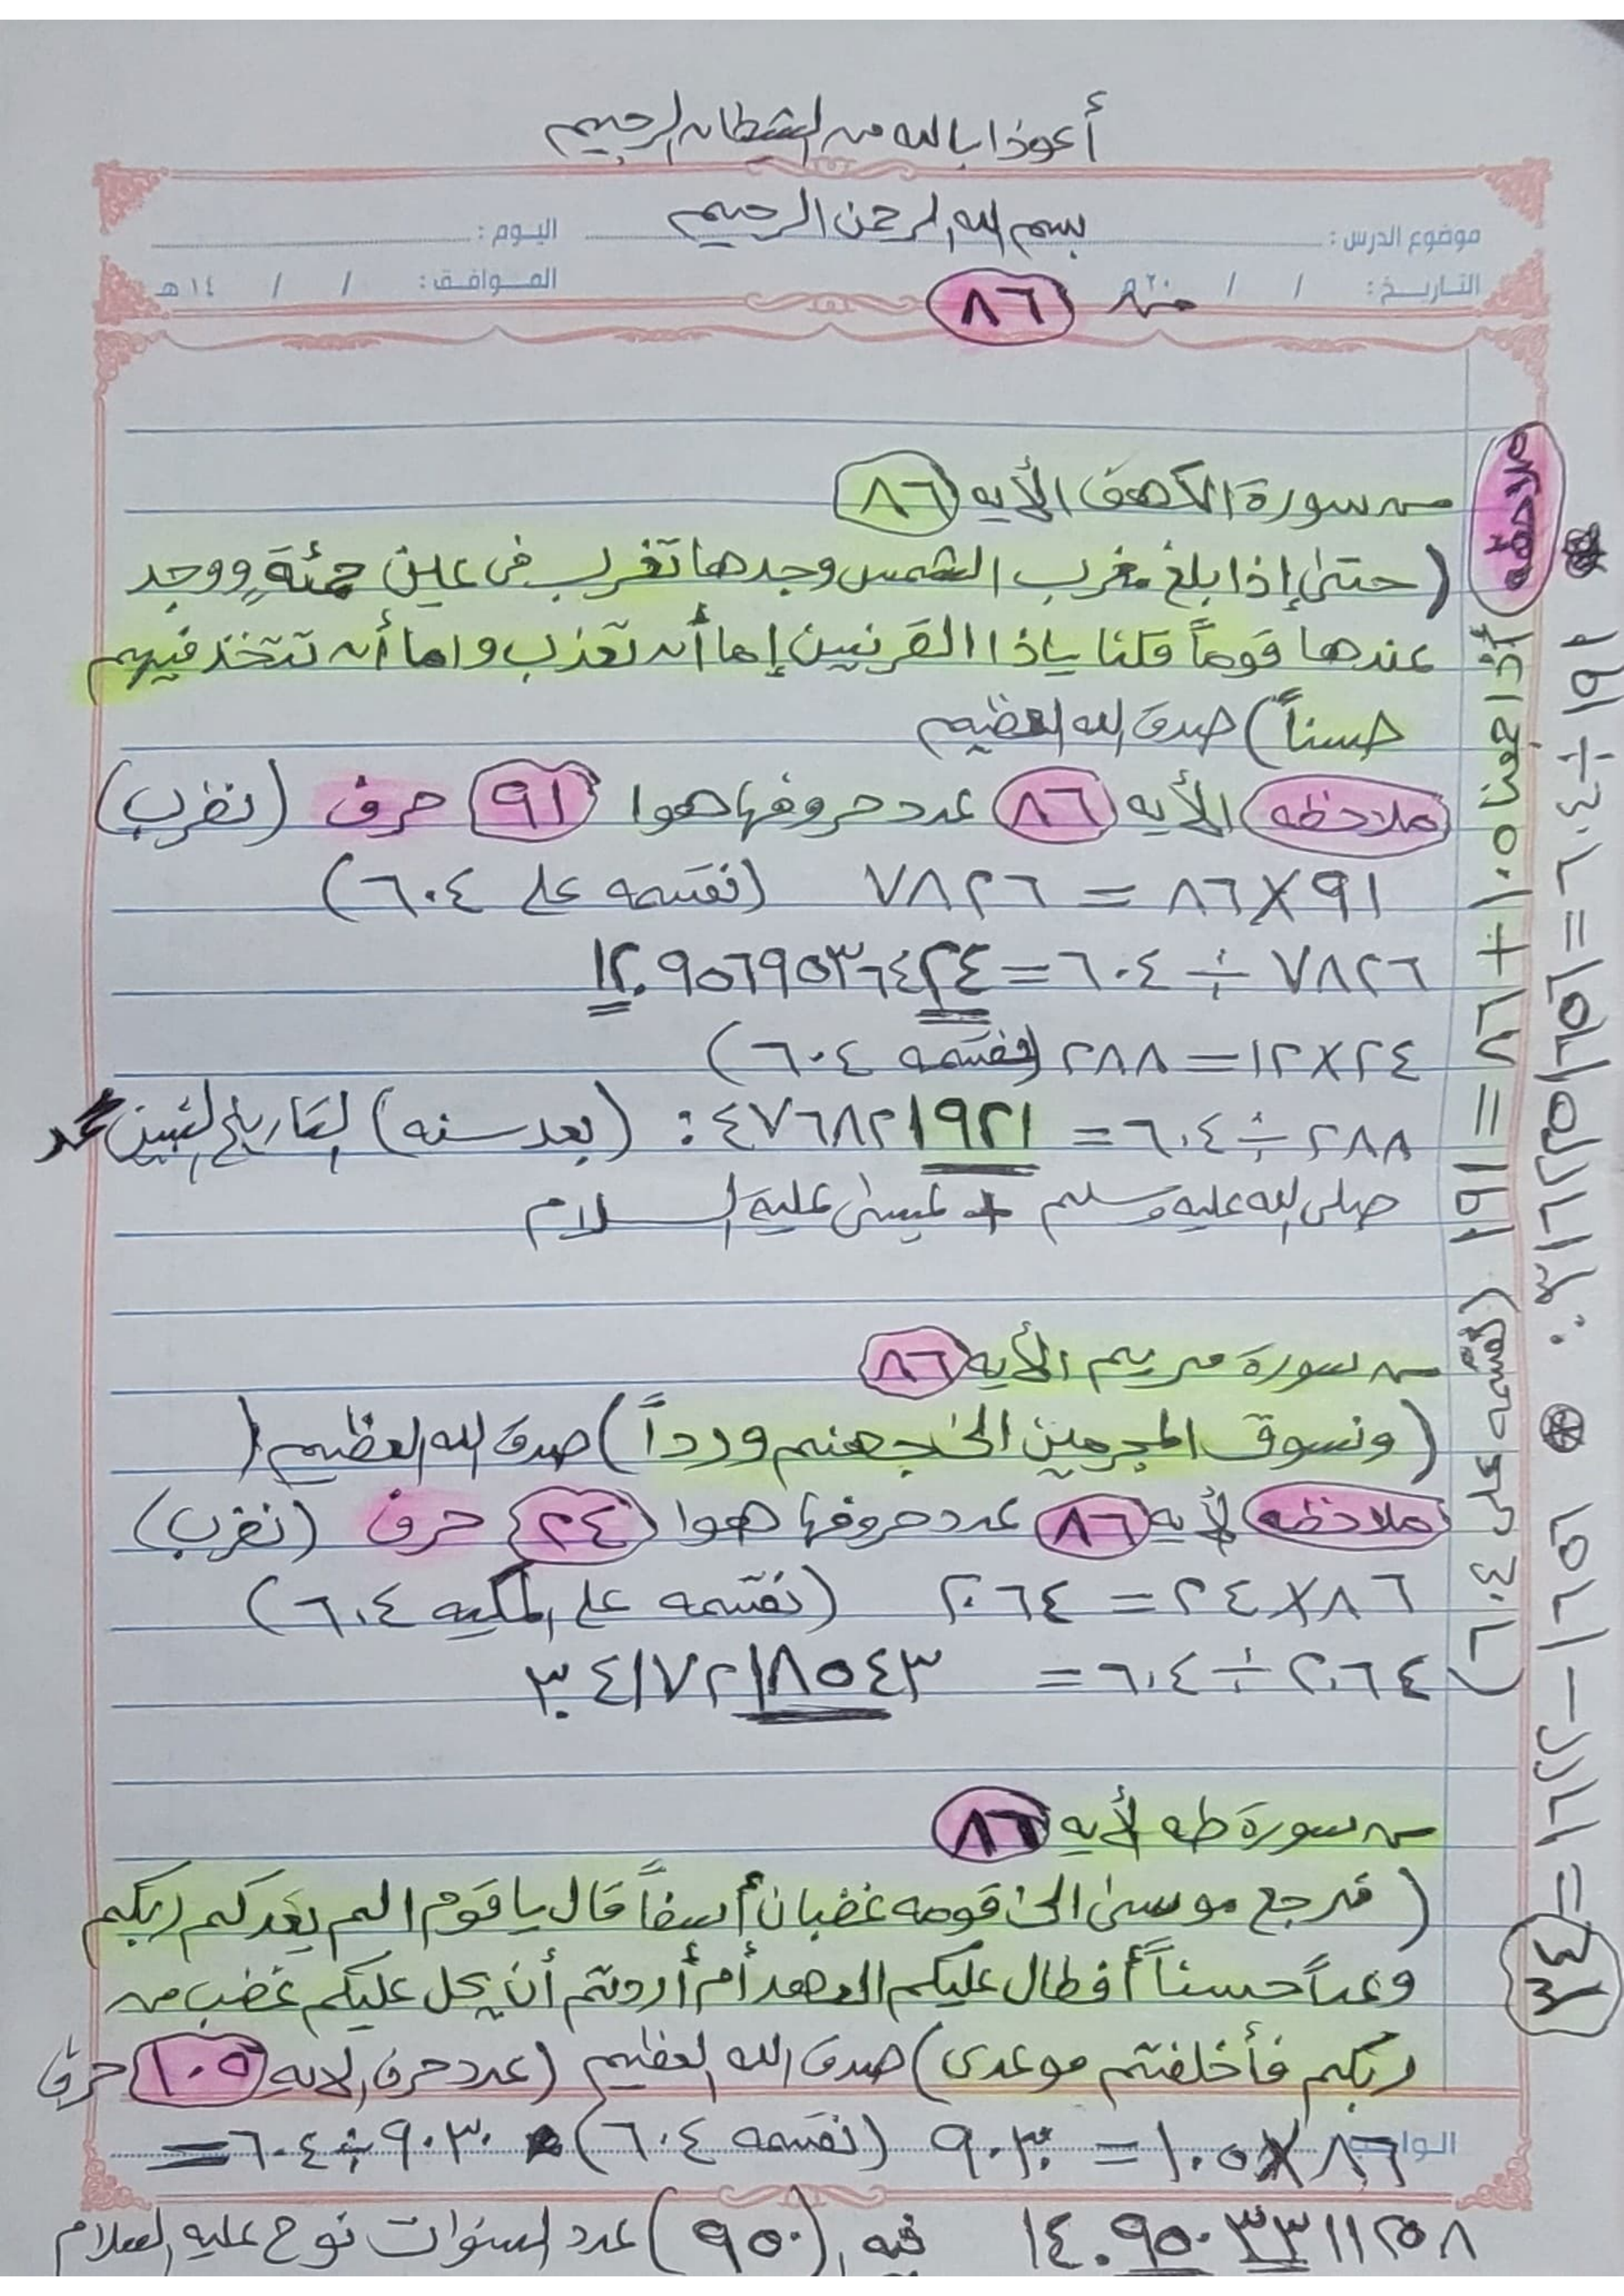 أعوذا بالله من الشيطان الرجيم
بسم الله الرحمن الرحيم
موضوع الدرس : اليوم :
التاريخ : / / ٢٠ م الموافق : / / ١٤ هـ
من ٨٦
من سورة الكهف الأيه ٨٦
(حتىٰ إذا بلغ مغرب الشمس وجدها تغرب في عين حمئةٍ ووجد
عندها قوماً قلنا ياذا القرنين إما أن تعذب واما أن تتخذ فيهم
حسناً) صدق الله العظيم
ملاحظه الأيه ٨٦ عدد حروفها هوا ٩١ حرف (نضرب)
٩١ X ٨٦ = ٧٨٢٦ (نقسمه على ٦٠٤)
٧٨٢٦ ÷ ٦٠٤ = ١٢.٩٥٦٩٥٣٦٤٢٤
٢٤ X ١٢ = ٢٨٨ (نقسمه ٦٠٤)
٢٨٨ ÷ ٦٠٤ = ٤٧٦٨٢١٩٢١. : (بعد سنه) التاريخ النبين محمد
صلى الله عليه وسلم + عيسىٰ عليه السلام
من سورة مريم الأيه ٨٦
(ونسوق المجرمين الىٰ جهنم ورداً) صدق الله العظيم (
ملاحظه لأيه ٨٦ عدد حروفها هوا ٢٤ حرف (نضرب)
٨٦ X ٢٤ = ٢٠٦٤ (نقسمه على المكيه ٦٠٤)
٢٠٦٤ ÷ ٦٠٤ = ٣.٤١٧٢١٨٥٤٣
من سورة طه لأيه ٨٦
(فرجع موسىٰ الىٰ قومه غضبان أسفاً قال يا قوم الم يعدكم ربكم
وعداً حسناً أفطال عليكم العهد أم أردتم أن يحل عليكم غضب من
ربكم فأخلفتم موعدى) صدق الله العظيم (عدد حرف الايه ١٠٥ حرف
٨٦ X ١٠٥ = ٩٠٣٠ (نقسمه ٦٠٤) ٩٠٣٠ ÷ ٦٠٤ =
١٤.٩٥٠٣٣١١٢٥٨ فيه (٩٥٠) عدد السنوات نوح عليه السلام
ملاحظه أذا جمعنا ١٠٥ + ٨٦ = ١٩١ (نقسمه على ٦٠٤)